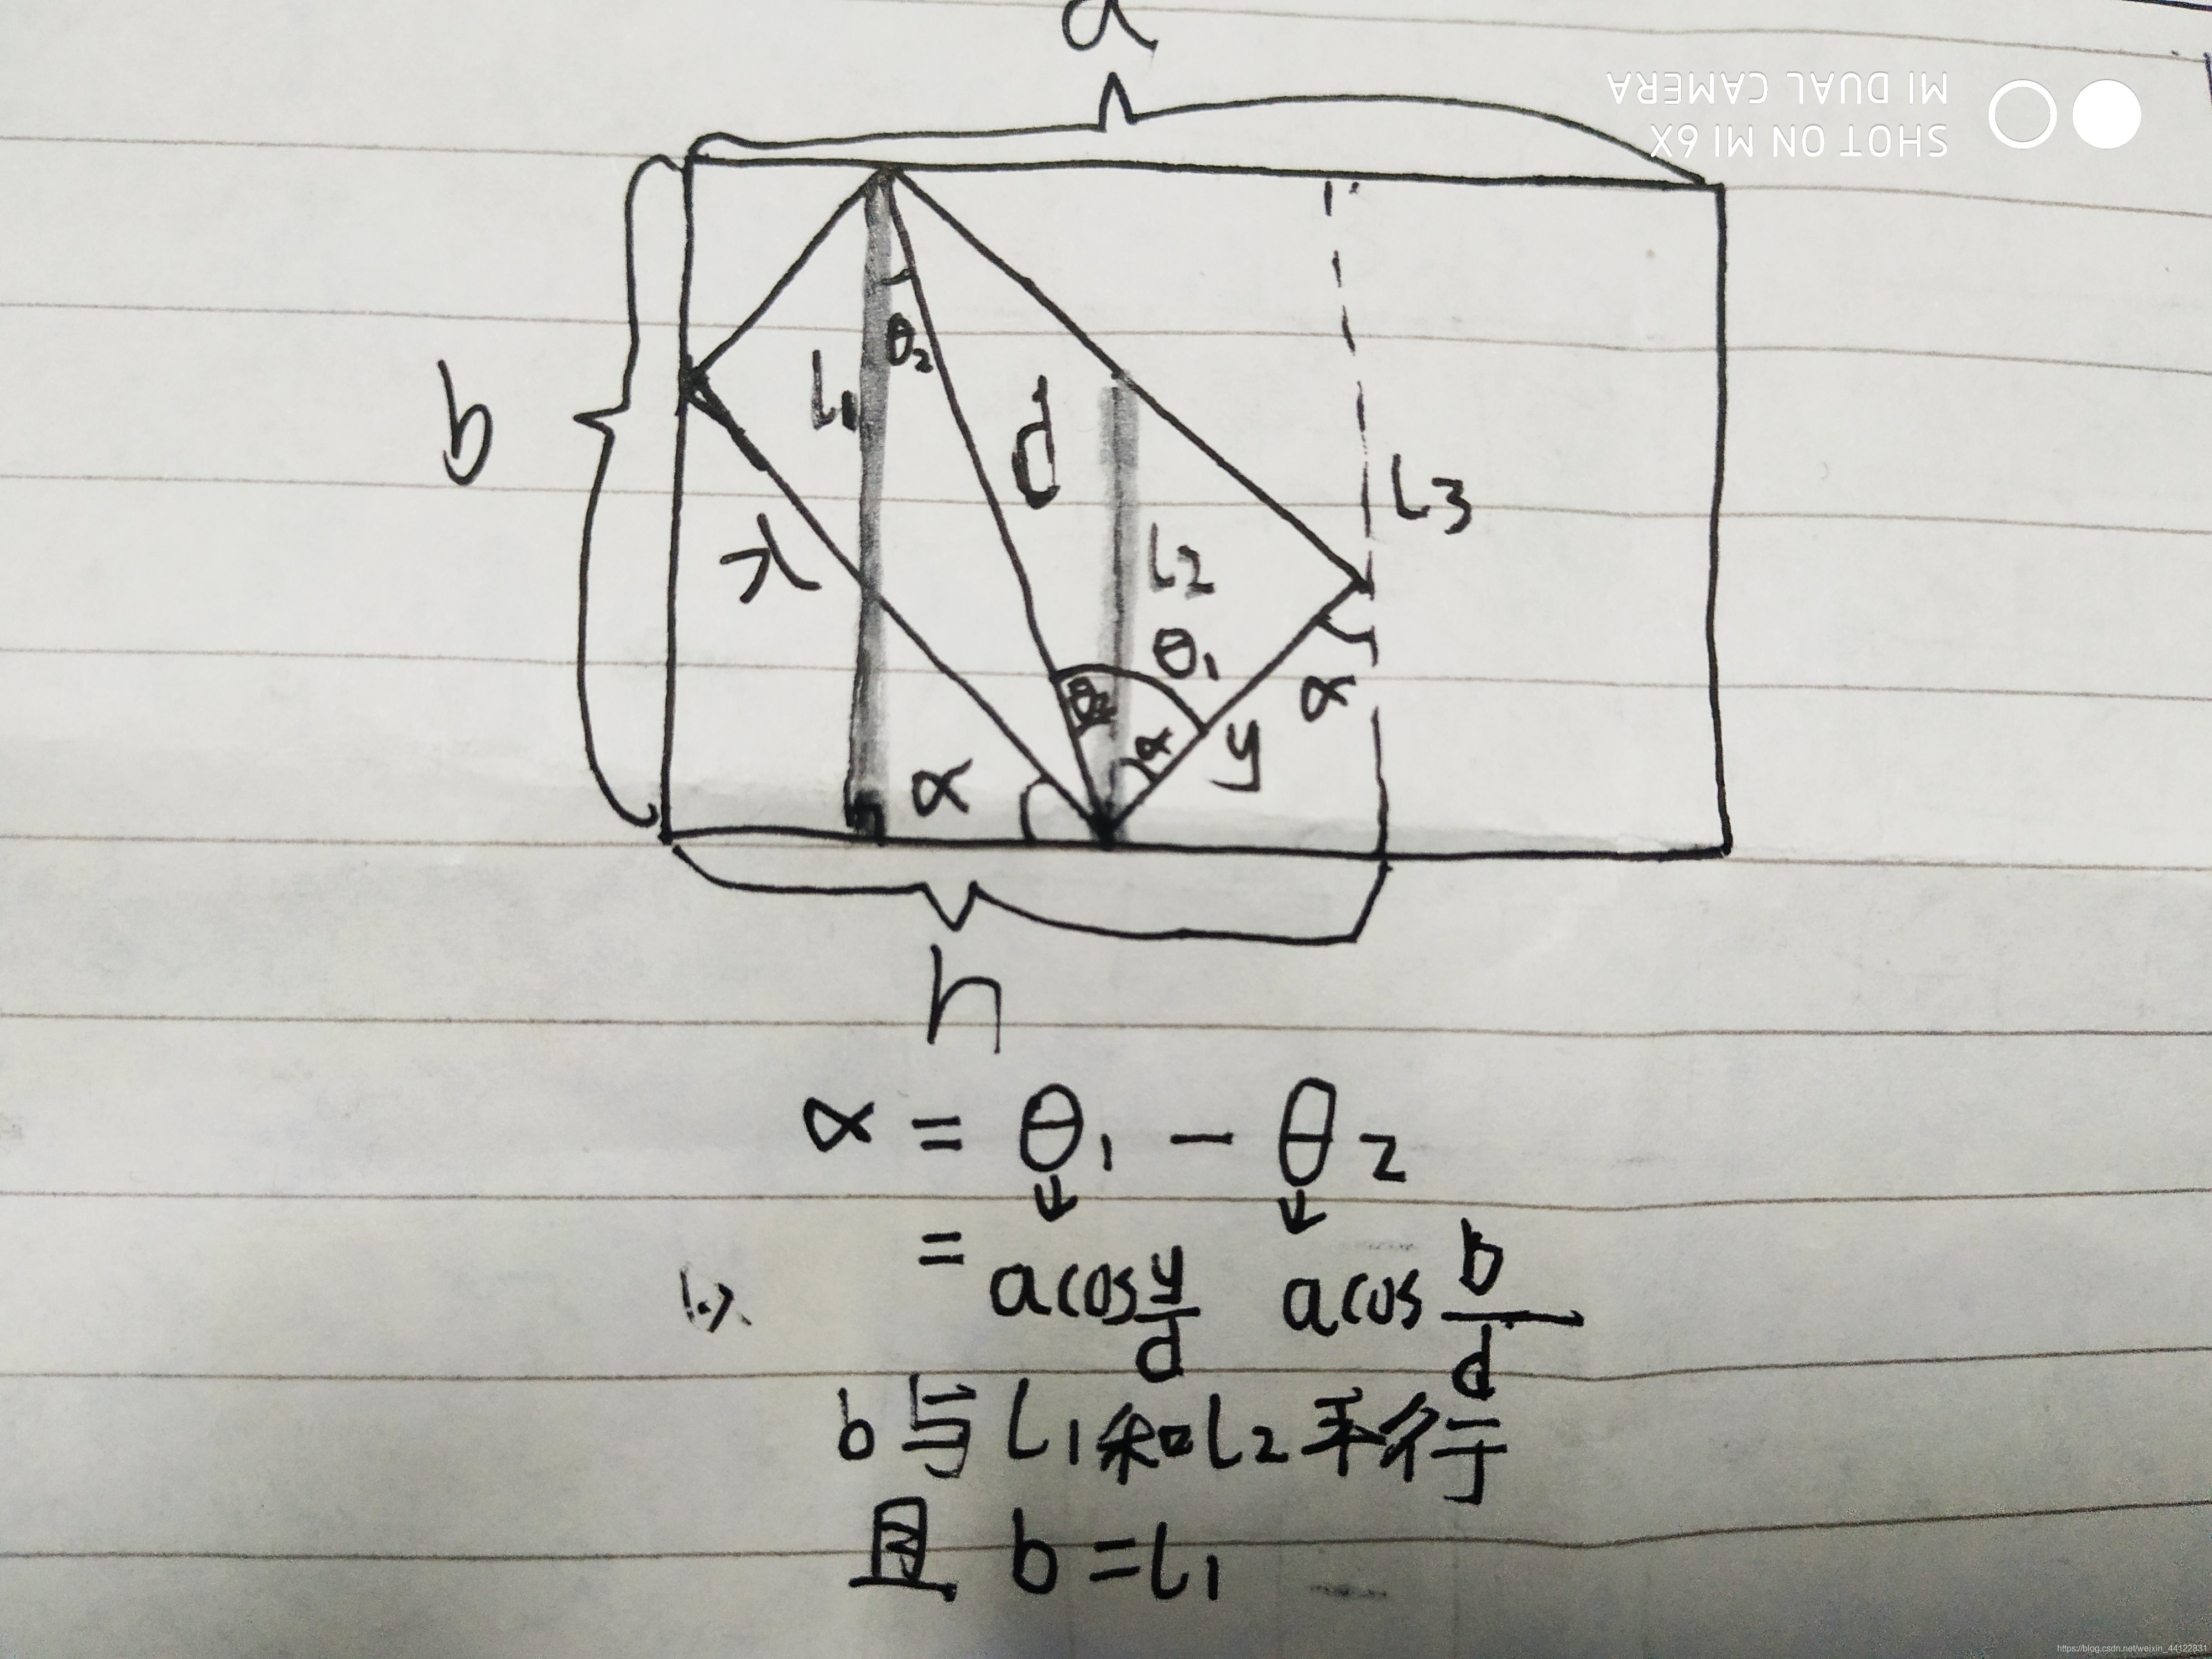 a
SHOT ON MI 6X
MI DUAL CAMERA
b
l1
θ2
d
l2
l3
x
θ1
θ2
α
α
y
α
h
α = θ1 - θ2
= acos y/d acos b/d
b与l1和l2平行
且 b=l1
https://blog.csdn.net/weixin_44122831